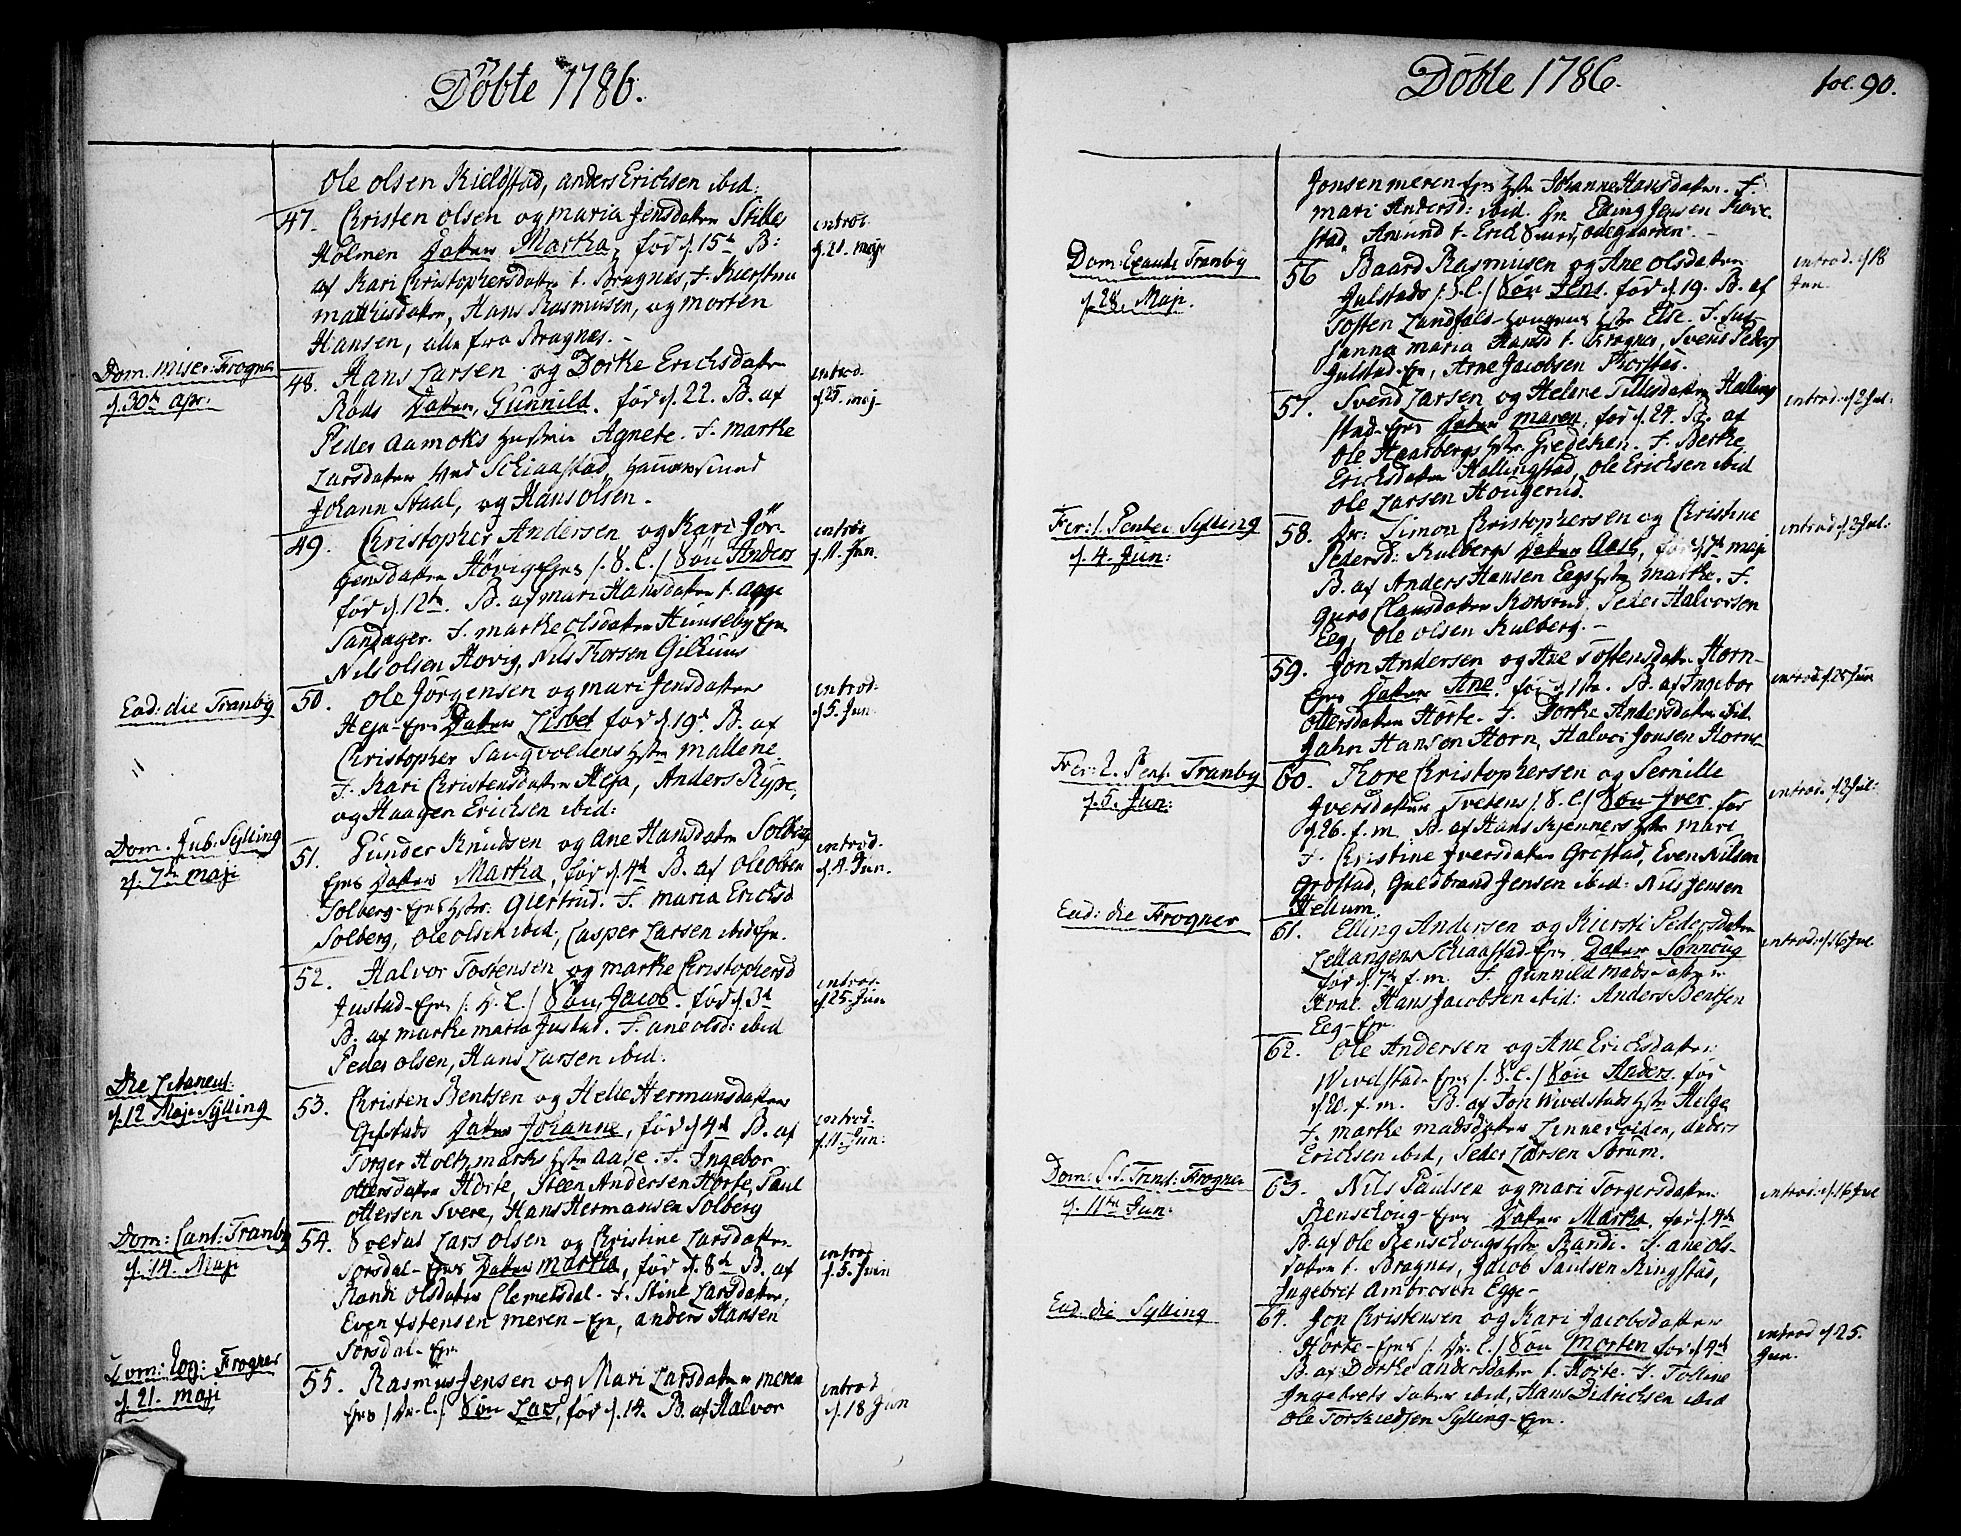 Döbte 1786.
Ole Olsen Kieldstad, anders Erichsen ibid:
47. Christen Olsen og maria Jensdatter Stille
Holmen Datter Martha, før d. 15de B:
af Kari Christophersdatter t. Bragnæs, F. Kierstine
mathisdatter, Hans Rasmusen, og morten
Hansen, alle fra Bragnæs. -
introd:
d. 21. maji
Dom: miser: Frogner
d. 30te apr:
48. Hans Larsen og Dorthe Erichsdatter
Røds Datter Gunnild. før d. 22. B. af
Peder Aamoths Agnete. F. marthe
Larsdatter Schiaastad,
Johann Staal, og Hans Olsen.
introd.
d. 25. maj.
49. Christopher Andersen og Kari Jör-
gensdatter Høvig Ejer /: S. C. / Søn Anders
før d. 12te. B. af mari Hansdatter t. aage
Sandager. F. marthe Olsdatter Hunseby Ejer
Nils Olsen Høvig, Nils Thorsen Gilhuus
introd:
d. 11. Jun:
Eod: die Tranby
50. Ole Jørgensen og mari Jensdatter
Heja-Ejer Datter Lisbet før d. 19de B. af
Christopher hstr mallene
F. Kari Christensdatter Heja, Anders Rype,
og Haagen Erichsen ibid:
introd:
d. 5. Jun.
Dom. Jub. Sylling
d. 7de maji
51. Gunder Knudsen og Ane Hansdatter Solberg
Ejer Datter Martha, før d. 4de B. af Ole Olsen
Solberg-Ejers hstr: Giertrud. F. maria Ericksd
Solberg, Ole Olsen ibid, Casper Larsen ibid Ejer.
introd.
d. 4. Jun.
52. Halvor Tostensen og marthe Christophersd
Justad-Ejer /: S. C. / Søn, Jacob. før d. 3de
B. af marthe maria Justad. F. ane olsd: ibid
Peder Olsen, Hans Larsen ibid:
introd:
d. 25. Jun
Die Letaneut:
d. 12 Maji Sylling
53. Christen Bentsen og Helle Hermansdatter
Gifstads Datter Johanne, før d. 4de B. af
Torger Holtzmarks hstr Aase. F. Ingebor
Ottersdatter Hørte, Steen Andersen Hørte, Paul
Ottersen Svere, Hans Hermansen Solberg
introd.
d. 11. Jun:
Dom: Cant: Tranby
d. 14. Maji
54. Soldat Lars Olsen og Christine Larsdatter
Sørsdal-Ejer Datter Martha, før d. 8de B. af
Randi Olsdatter Clemetsdal. F. Stine Larsdatter,
Even Estensen meren-Ejer, anders Hansen
Sørsdal-Ejer
introd
d. 5. Juin
Dom: Rog: Frogner
d. 21. maji
55. Rasmus Jensen og Mari Larsdatter meren
Ejer / S. C. / Søn Lars, før d. 14. B. af Halvor
introd
d. 18 Jun
Döbte 1786.
fol. 90.
Jonsen meren-Ejer hstr Johanne Hansdatter. F.
mari Andersd: ibid. Elling Jensen
stad, Amund t. Erich Odegaarden. -
Dom: Exaudi Tranby
d. 28. Maji.
56 Baard Rasmusen og Ane Olsdatter
Julstads /: S. C. / Søn Jens. før d. 19. B. af
Tosten Landfald- hstr Else. F. Su-
sanna maria Hansd t. Bragnæs, Svend Peders
Julstad-Ejer, Arne Jacobsen Thorstad.
introd. d. 18
Jun.
57. Svend Larsen og Helene Tillesdatter Halling
stad-Ejer Datter maren, før d. 24. B. af
Ole Haarbergs hstr Gredeken. F. Berthe
Erichsdatter Hallingstad, Ole Erichsen ibid
Ole Larsen Hougerud.
introd. d. 2 Jul:
Fer: 1. Pentec. Sylling
d. 4. Jun:
58. Simon Christophersen og Christine
Pedersd: Kulbergs Datter Aase, før d. 7de maji
B. af Anders Hansen Eegs hstr marthe. F.
Guro Clausdatter Peder Halvorsen
Eeg, Ole Olsen Kulberg. -
introd d. 2 Jul:
59. Jon Andersen og Ane Tostensdatter Horn-
Ejer Datter Ane. før d. 1ste. B. af Ingebor
Ottersdatter Hørte. F. Dorthe Andersdatter ibid
Jahn Hansen Horn, Halvor Jonsen Horn-
introd d. 25 Jun
Fer: 2. Pent. Tranby
d. 5. Jun:
60. Thore Christophersen og Pernille
Iversdatter Tvetens /: S. C. / Søn Iver. før
d. 26. f. m. B. af Hans Kjenners hstr Mari
F. Christine Iversdatter Grøstad, Even Nilsen
Grøstad, Guldbrand Jensen ibid: Nils Jensen
Hellum.
introd: d. 2 Jul:
Eod: die Frogner
61. Elling Andersen og Kiersti Pedersdatter
Lellangens Schiaastad-Ejer Datter Sønnoug
før d. 7de f. m. F. Gunnild madsdatter
Hval. Hans Jacobsen ibid: Anders Bentsen
Eeg-Ejer
introd: d. 16 Jul
62. Ole Andersen og Ane Erichsdatter
Wivelstad-Ejer /: S. C. / Søn Anders. før
d. 20. f. m. B. af Jon Wivelstads hstr Helge
F. marthe madsdatter Linnevolden, Anders
Erichsen ibid, Peder Larsen Sørum.
Dom: S. S. Trinit: Frogner
d. 11te Jun:
63. Nils Paulsen og mari Torgersdatter
Renschoug-Ejer Datter Martha, før d. 4de
B. af Ole Renschougs hstr Randi. F. ane Ols-
datter t. Bragnæs, Jacob Paulsen Ringstad,
Ingebret Ambrosen Egge-
introd: d. 16 Jul
Eod: die Sylling
64. Jon Christensen og Kari Jacobsdatter
Hørte-Ejer /: S. C. / Søn Morten før d. 4de
B. af Dorthe andersdatter t. Hørte. F. Tolline
Ingebrets datter ibid, Hans Didrichsen ibid
Ole Torstedsen Sylling-Ejer.
introd d. 25.
Jun.